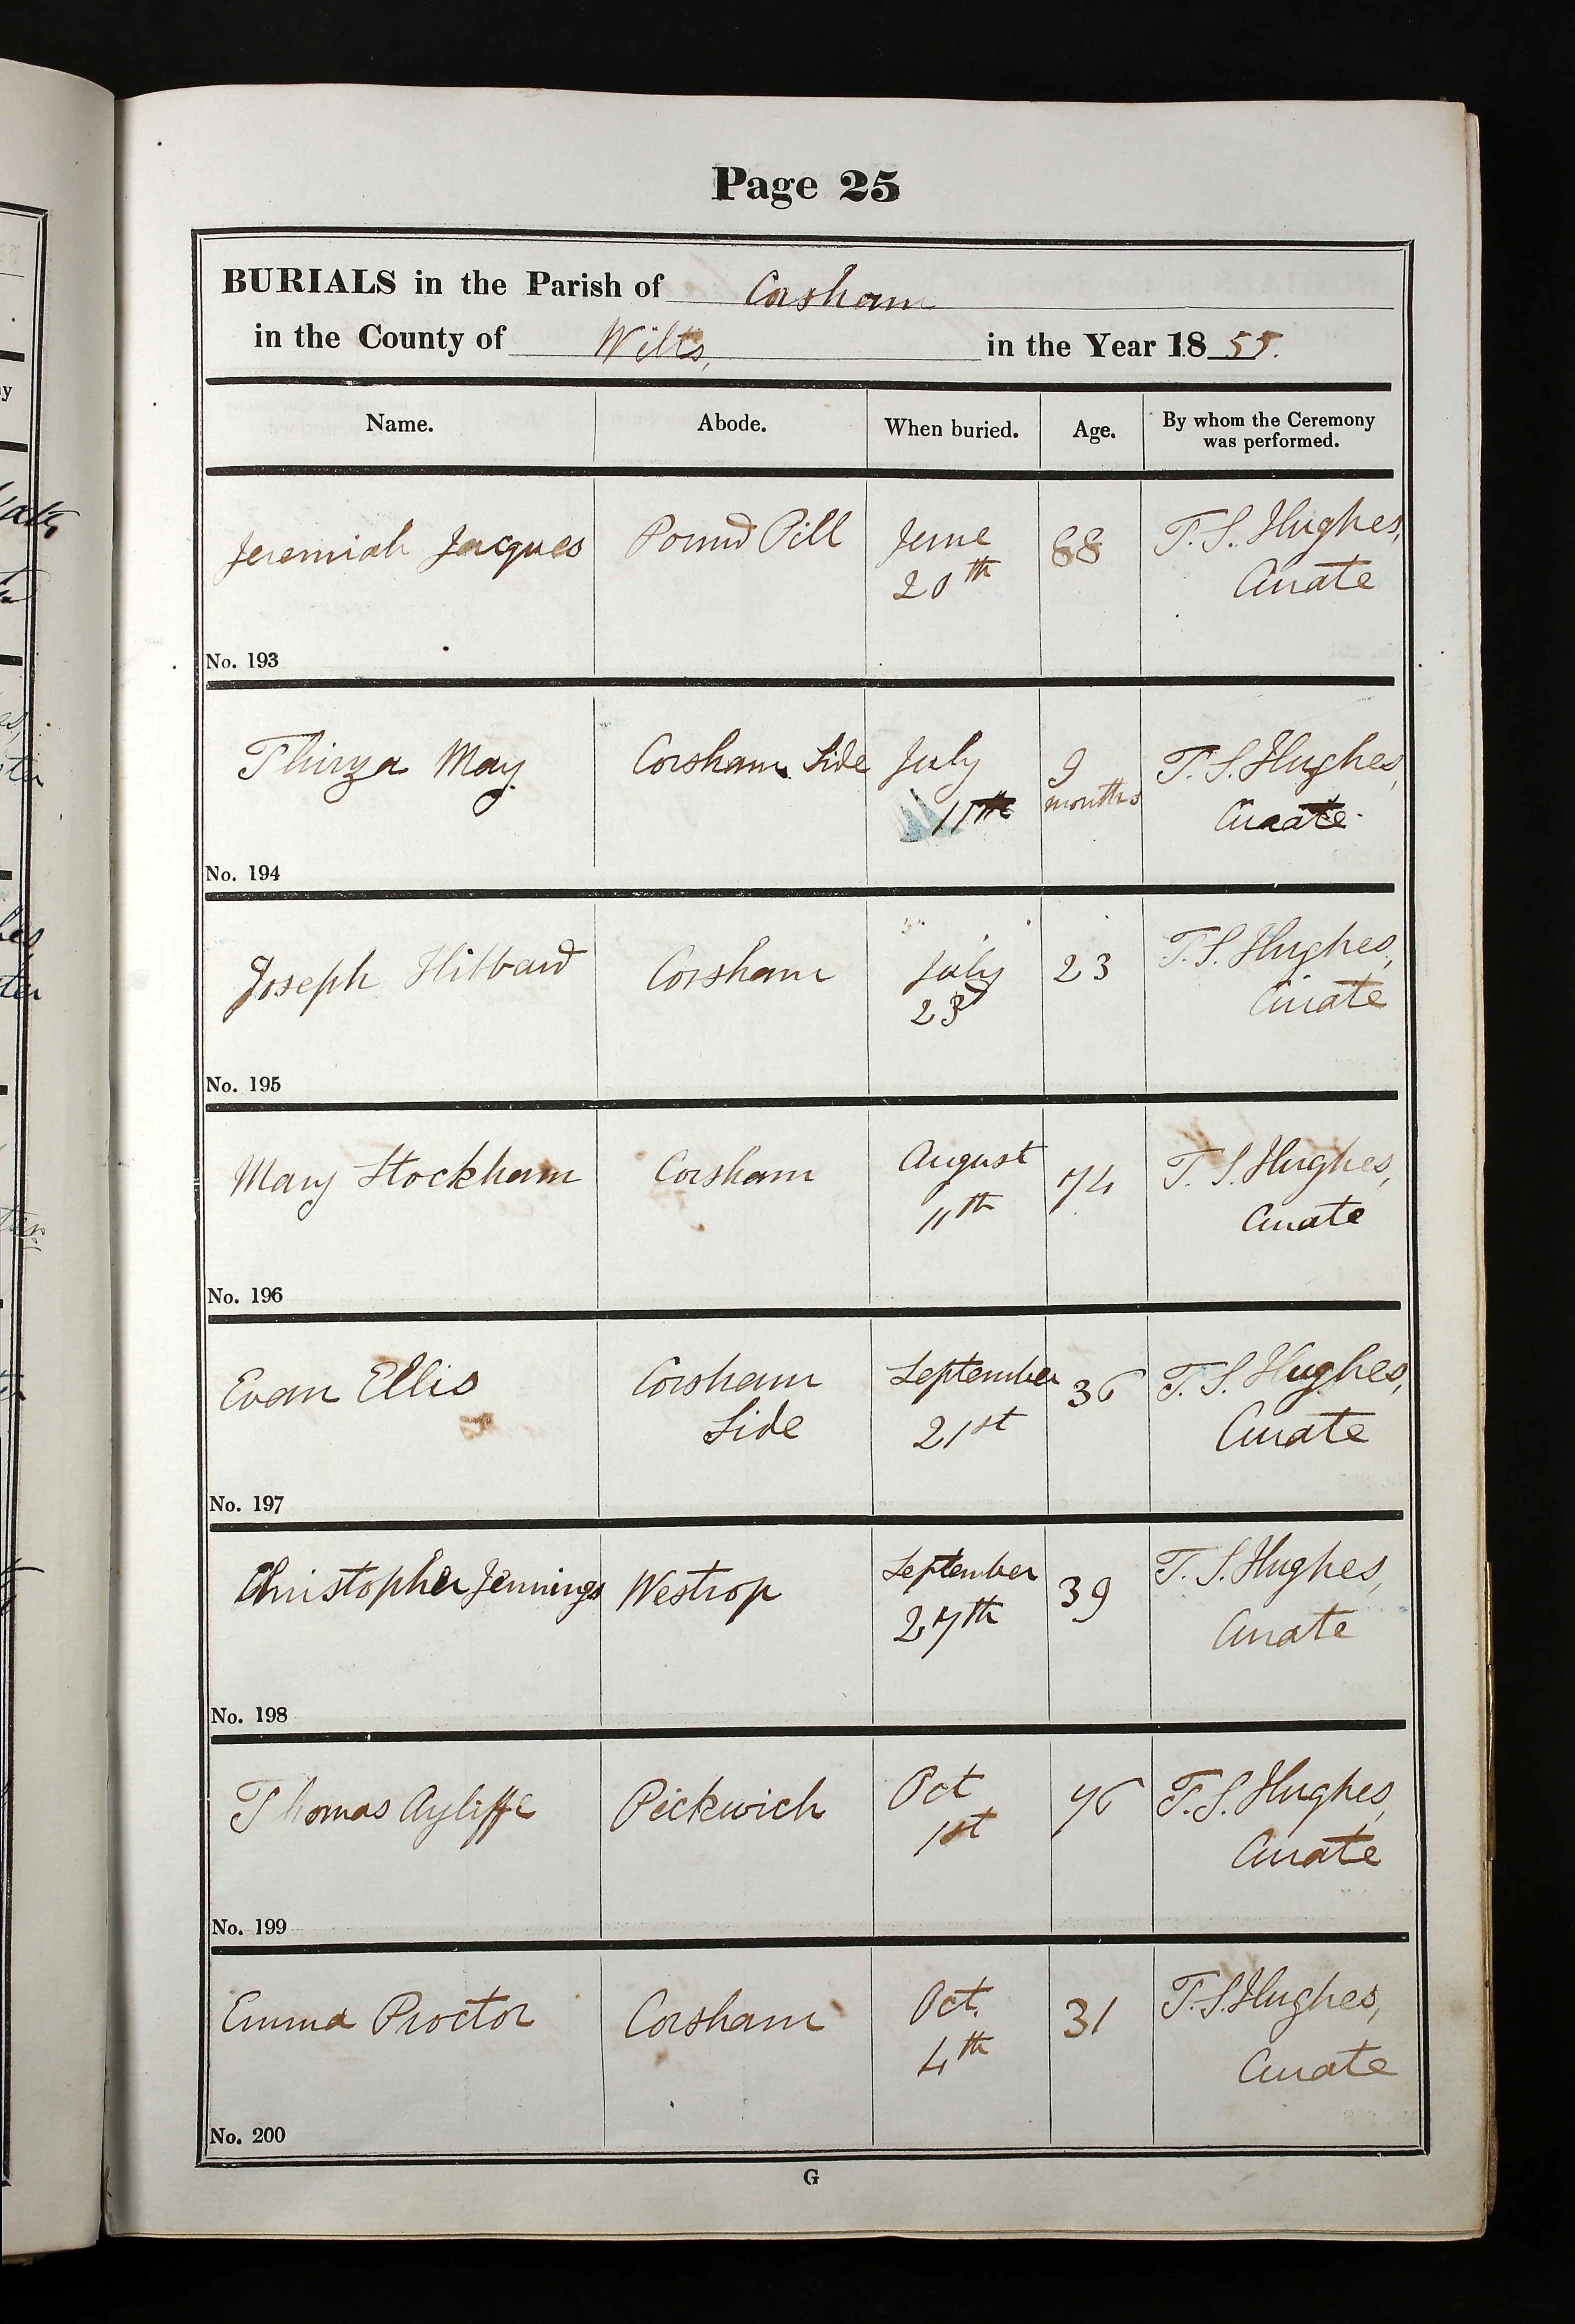 Page 25
BURIALS in the Parish of Corsham
in the County of Wilts, in the Year 1855.
Name. Abode. When buried. Age. By whom the Ceremony was performed.
Jeremiah Jacques Pound Pill June 20th 88 T. S. Hughes, Curate
No. 193
Thirza May Corsham Side July 11th 9 months T. S. Hughes, Curate
No. 194
Joseph Hibbard Corsham July 23d 23 T. S. Hughes, Curate
No. 195
Mary Stockham Corsham August 11th 74 T. S. Hughes, Curate
No. 196
Evan Ellis Corsham Side September 21st 36 T. S. Hughes, Curate
No. 197
Christopher Jennings Westrop September 27th 39 T. S. Hughes, Curate
No. 198
Thomas Ayliffe Pickwich Oct 1st 76 T. S. Hughes, Curate
No. 199
Emma Proctor Corsham Oct. 4th 31 T. S. Hughes, Curate
No. 200
G